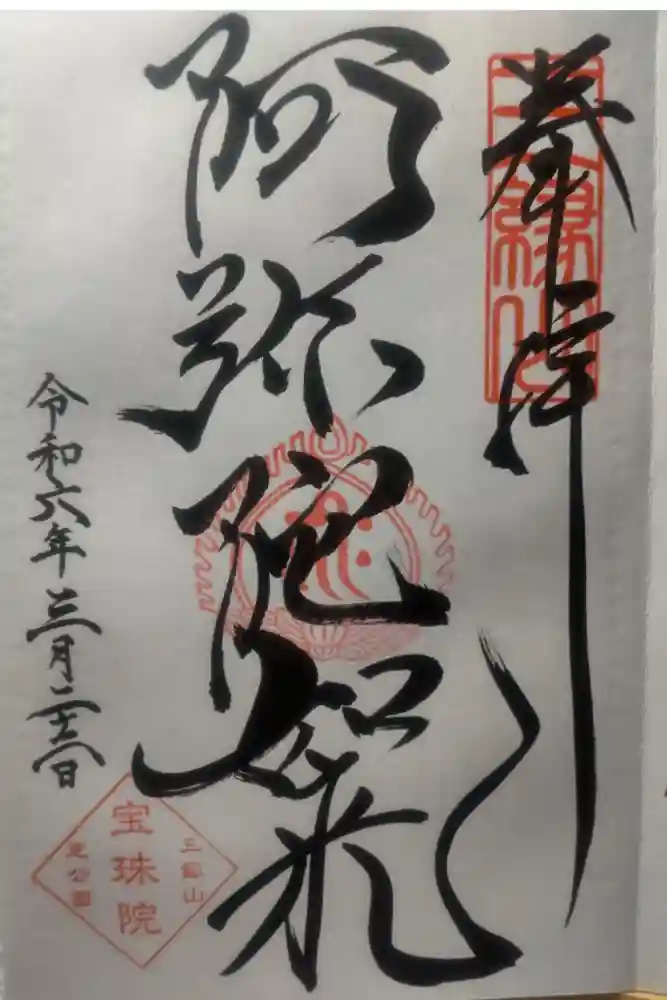 奉拝
三縁山
阿弥陀如来
令和六年三月二十二日
三縁山
宝珠院
芝公園